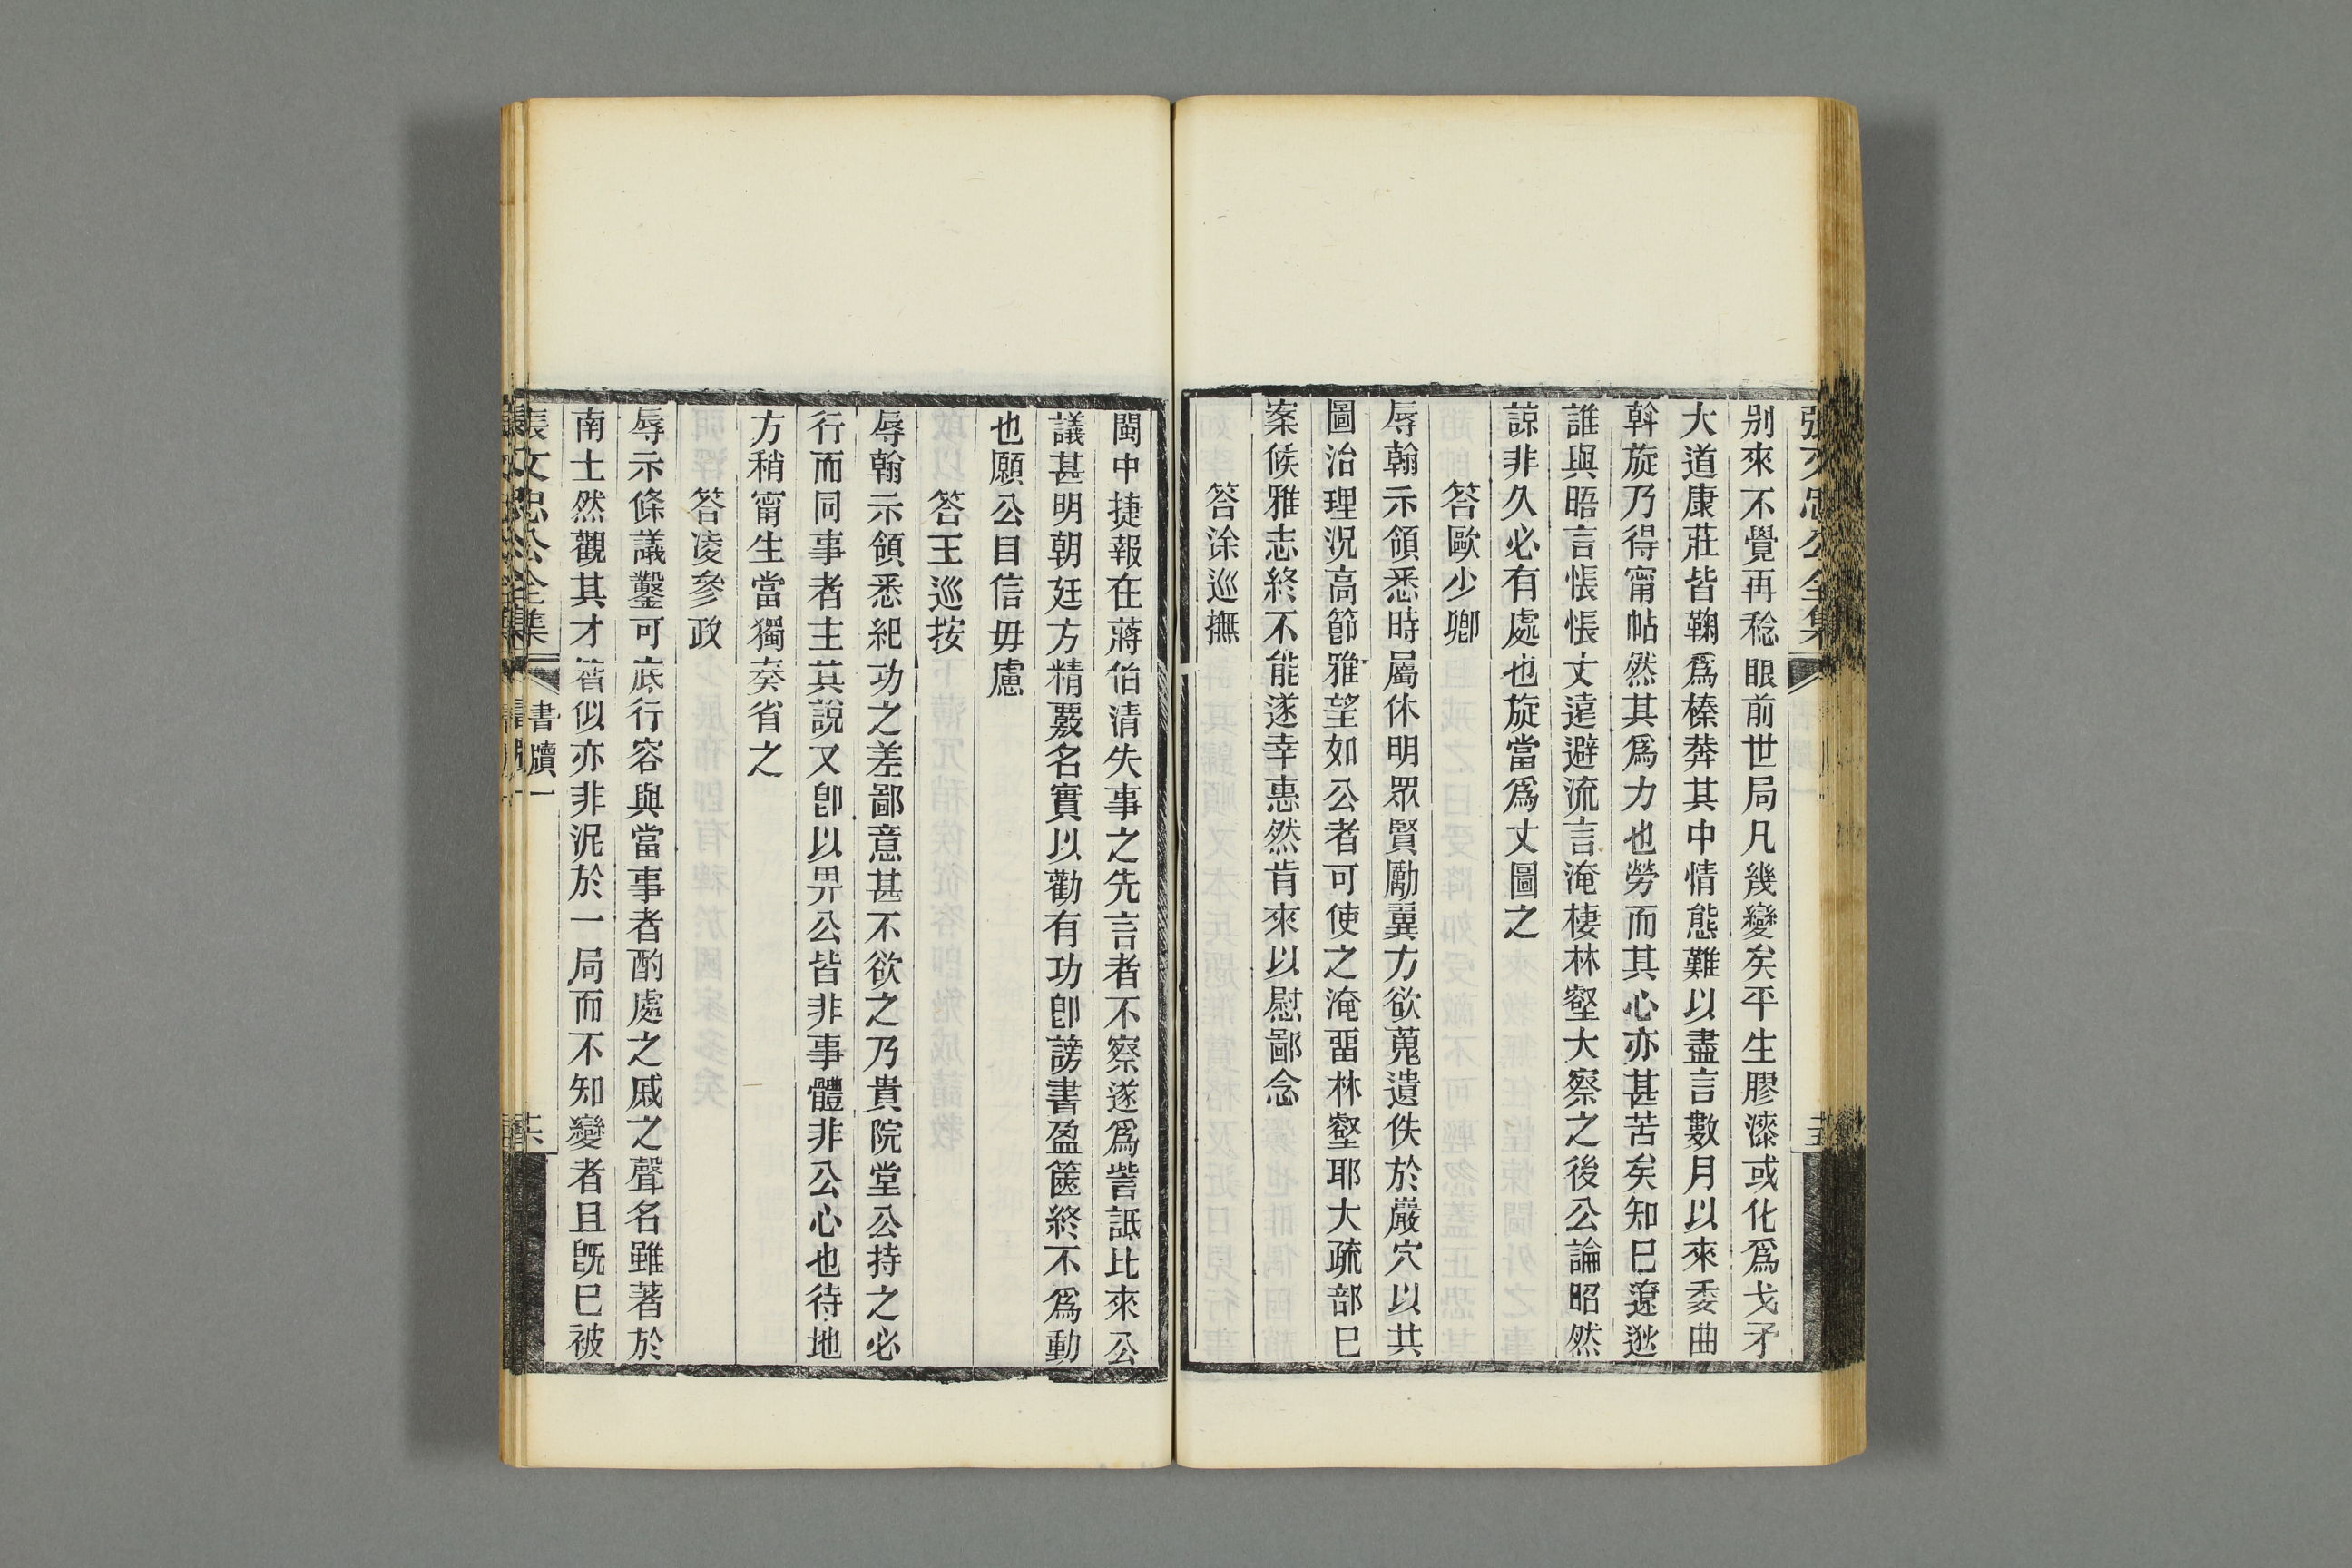 張文忠公全集
別來不覺再稔眼前世局凡幾變矣平生膠漆或化爲戈矛
大道康莊皆鞠爲榛莽其中情態難以盡言數月以來委曲
斡旋乃得甯帖然其爲力也勞而其心亦甚苦矣知己遼逖
誰與晤言悵悵丈遠避流言淹棲林壑大察之後公論昭然
諒非久必有處也旋當爲丈圖之
答歐少卿
辱翰示領悉時屬休明眾賢勵翼方欲蒐遺佚於嚴穴以共
圖治理況高節雅望如公者可使之淹畱林壑耶大疏部已
案候雅志終不能遂幸惠然肯來以慰鄙念
答涂巡撫
閩中捷報在蔣伯清失事之先言者不察遂爲訾詆比來公
議甚明朝廷方精覈名實以勸有功卽謗書盈篋終不爲動
也願公自信毋慮
答王巡按
辱翰示領悉紀功之差鄙意甚不欲之乃貴院堂公持之必
行而同事者主其說又卽以畀公皆非事體非公心也待地
方稍甯生當獨奏省之
答凌參政
辱示條議鑿可底行容與當事者酌處之戚之聲名雖著於
南土然觀其才智似亦非泥於一局而不知變者且旣已被
張文忠公全集 書牘一